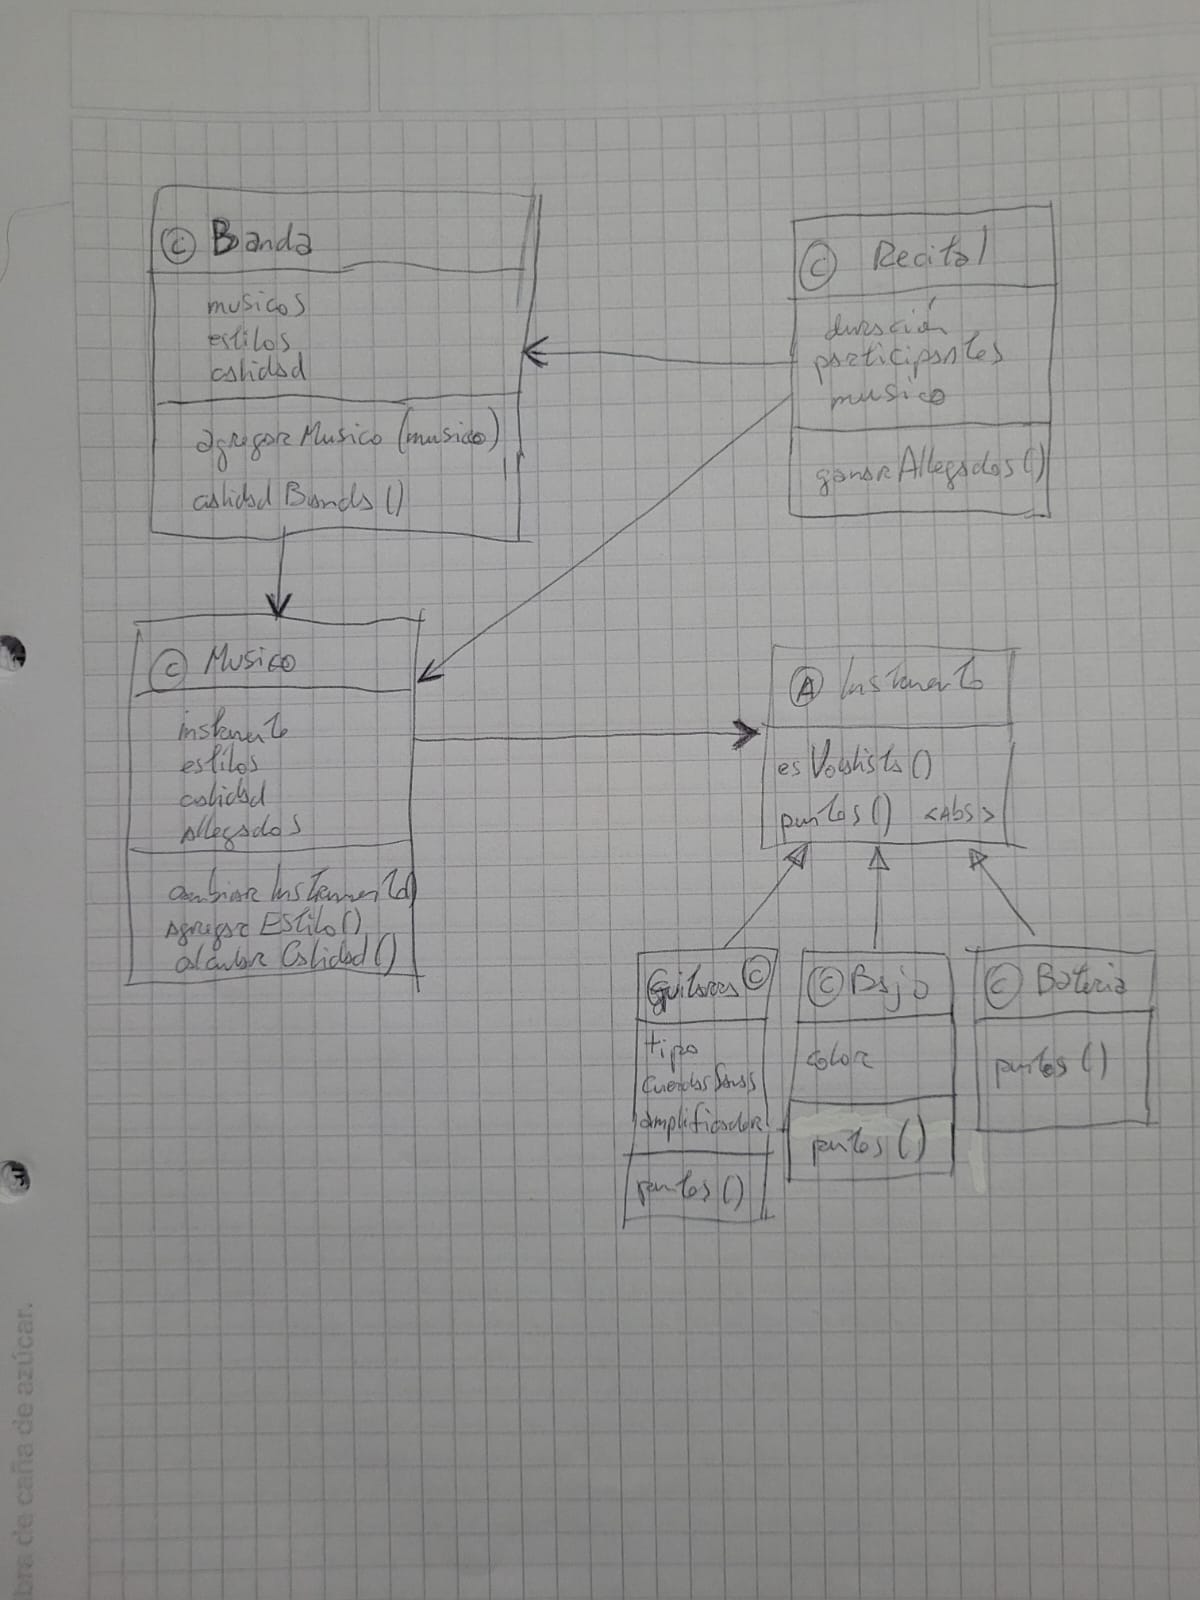 © Banda
musicos
estilos
calidad
agregar Musico (musico)
calidad Banda ()
© Recital
duración
participantes
musico
ganar Allegados ()
© Musico
instrumento
estilos
calidad
Allegados
cambiar Instrumento()
agregar Estilo()
calcular Calidad()
Ⓐ Instrumento
es Vocalista ()
puntos () <Abs>
Guitarras ©
tipo
cuerdas Sanas
amplificador
puntos ()
© Bajo
color
puntos ()
© Bateria
puntos ()
bra de caña de azúcar.